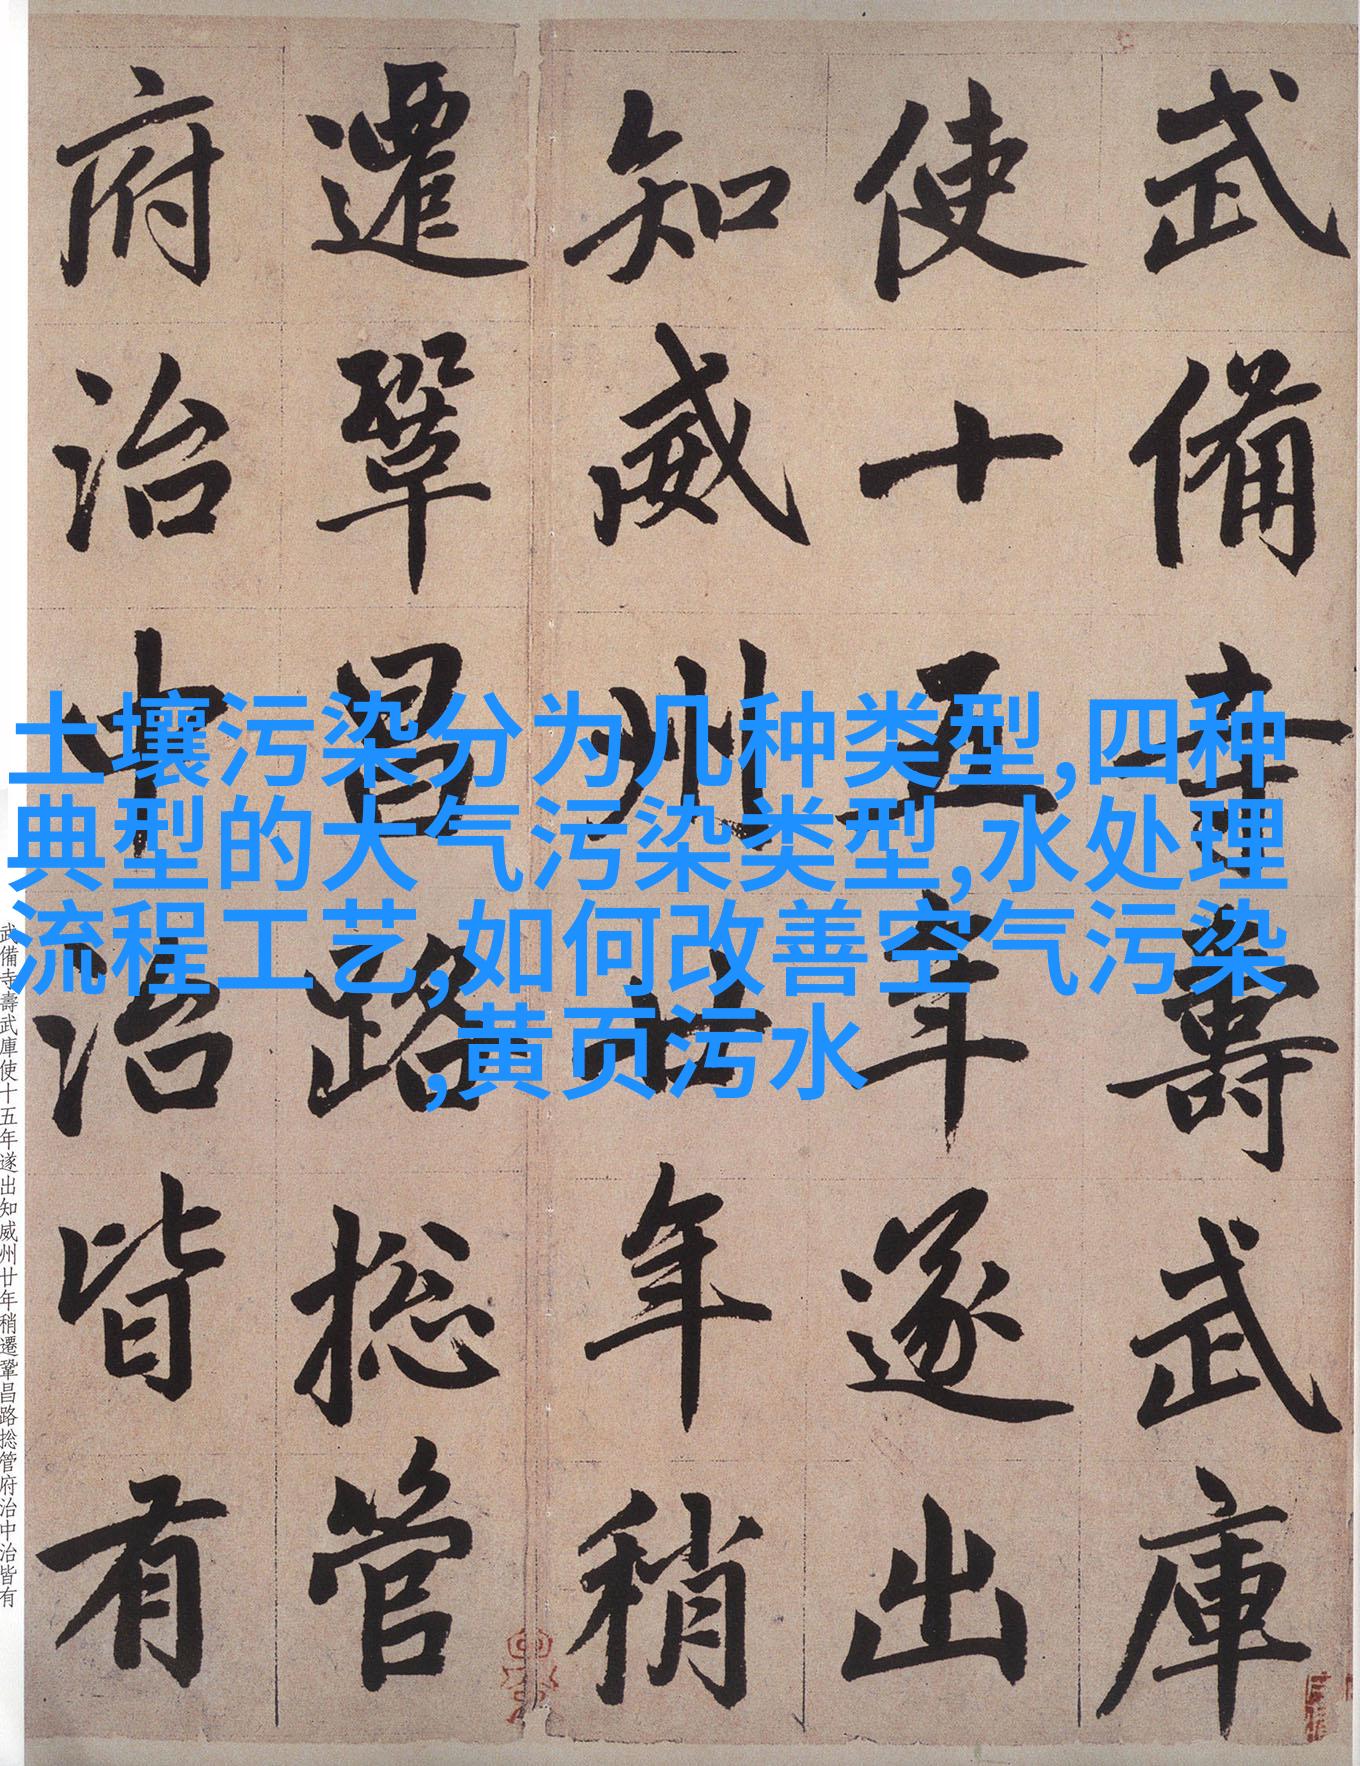 武備寺壽武庫
使十五年遂出
知威州廿年稍
遷鞏昌路捴管
府治中治皆有
土壤污染分为几种类型,四种
典型的大气污染类型,水处理
流程工艺,如何改善空气污染
,黄页污水
武備寺壽武庫使十五年遂出知威州廿年稍遷鞏昌路捴管府治中治皆有